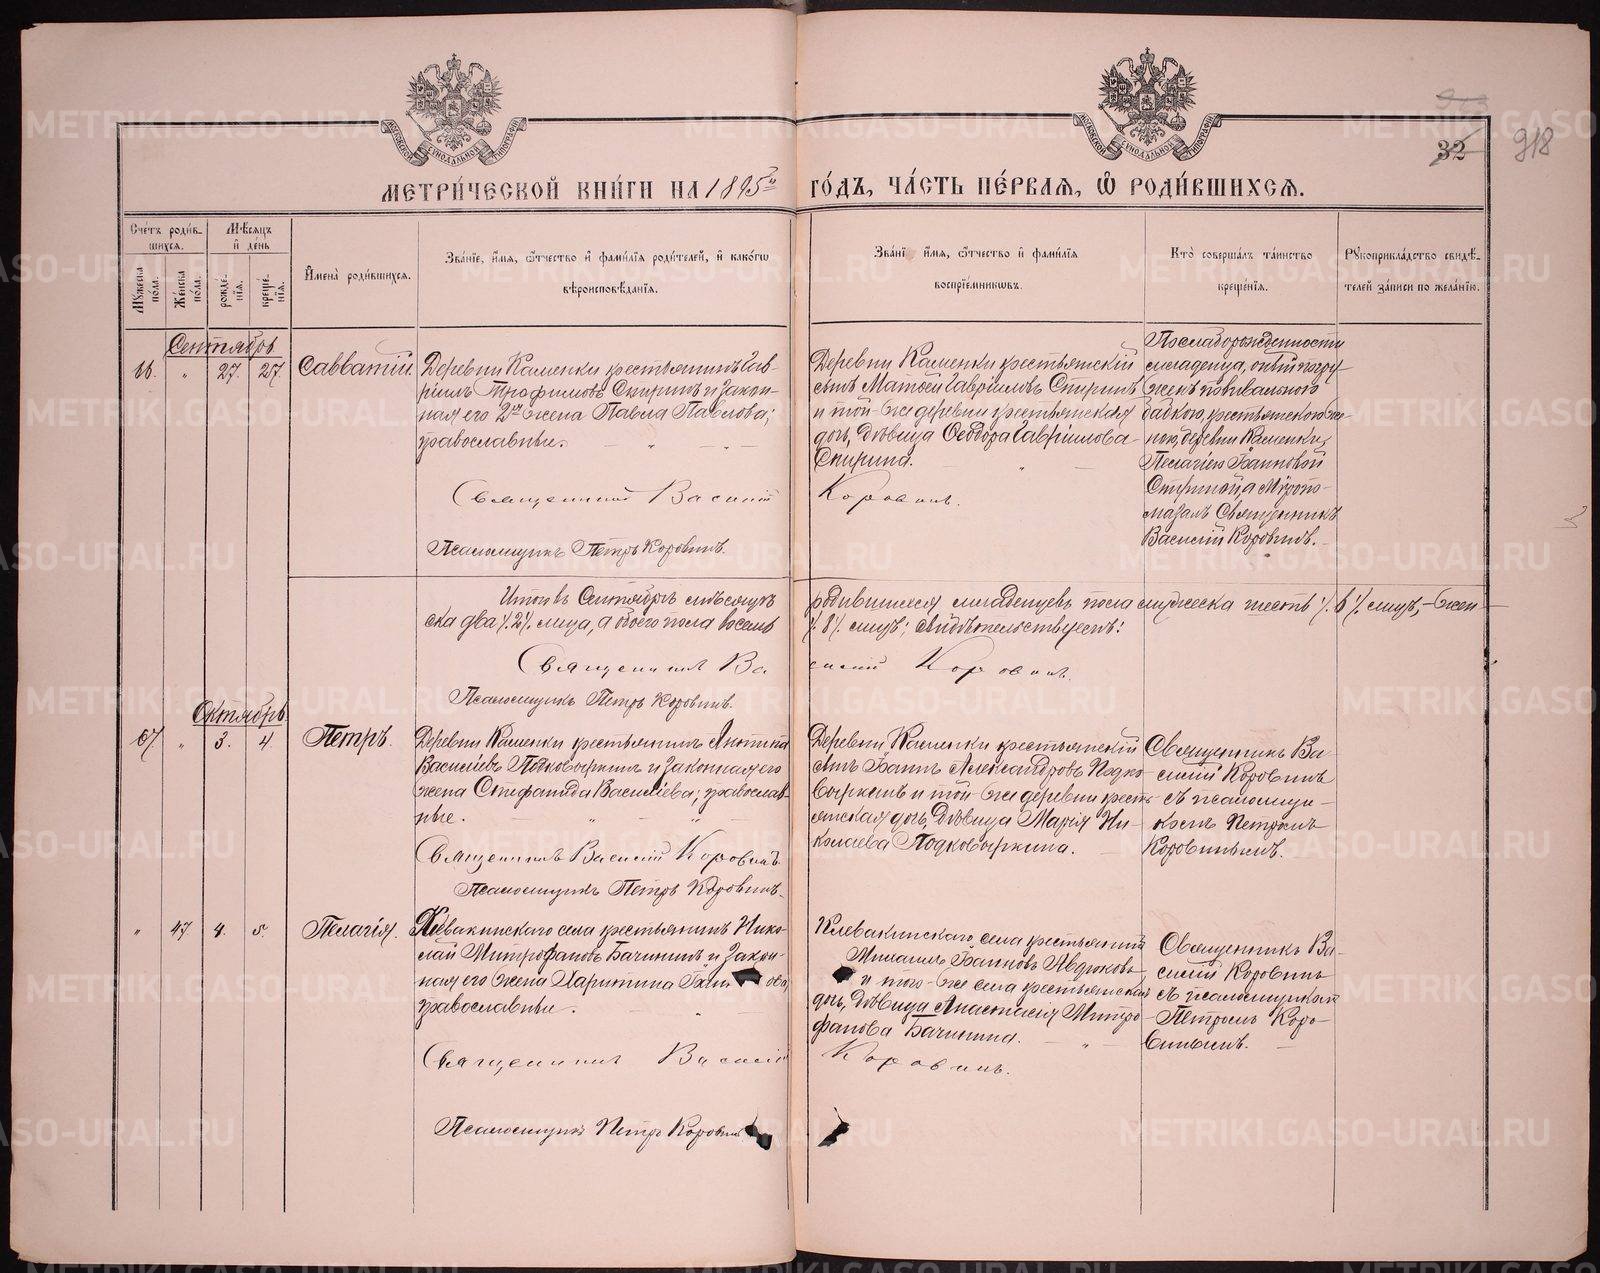 963
32
918
МОСКОВСКОЙ СѴНОДАЛЬНОЙ ТИПОГРАФІИ
МОСКОВСКОЙ СѴНОДАЛЬНОЙ ТИПОГРАФІИ
МЕТРИ́ЧЕСКОЙ КНИ́ГИ НА 1895й ГО́ДЪ, ЧА́СТЬ ПЕ́РВАЯ, Ѡ РОДИ́ВШИХСЯ.
Сче́тъ роди́в-
шихся.
Мꙋ́жеска по́ла.
Же́нска по́ла.
Мѣ́сяцъ
и҆ де́нь
рожде́-
нїя.
креще́-
нїя.
И҆мена̀ роди́вшихся.
Зва́нїе, и҆́мя, ѻ҆́тчество и҆ фами́лїя роди́телей, и҆ како́гѡ
вѣроисповѣ́данїя.
Зва́нїе и҆́мя, ѻ҆́тчество и҆ фами́лїя
воспрїе́мниковъ.
Кто̀ соверша́лъ та́инство
креще́нїя.
Рꙋкоприкла́дство свидѣ́-
телей за́писи по жела́нїю.
Сентябрь
66. " 27. 27.
Савватій.
Деревни Каменки крестьянинъ Гав-
ріилъ Трофимовъ Спиринъ и закон-
ная его 2я жена Павла Павлова;
православные.
Священникъ Василій Коровинъ.
Псаломщикъ Петръ Коровинъ.
Деревни Каменки крестьянскій
сынъ Матѳей Гавріиловъ Спиринъ
и той-же деревни крестьянская
дочь, дѣвица Ѳеодора Гавріилова
Спирина.
По слаборожденности
младенца, оный погру-
женъ повивальною
бабкою, крестьянскою же-
ною, деревни Каменки,
Пелагіею Іоанновой
Спириной, а мѵропо-
мазалъ Священникъ
Василій Коровинъ.
Итого въ Сентябрѣ мѣсяцѣ родившихся младенцевъ пола мужеска шесть /. 6 /. лицъ, жен-
ска два /. 2 /. лица, а обоего пола восемь /. 8 /. лицъ; свидѣтельствуемъ:
Священникъ Василій Коровинъ.
Псаломщикъ Петръ Коровинъ.
Октябрь
67. " 3. 4.
Петръ.
Деревни Каменки крестьянинъ Антипа
Васильевъ Подковыркинъ и законная его
жена Стефанида Васильева; православ-
ные.
Священникъ Василій Коровинъ.
Псаломщикъ Петръ Коровинъ.
Деревни Каменки крестьянскій
сынъ Іоаннъ Александровъ Подко-
выркинъ и той-же деревни кресть-
янская дочь, дѣвица Марія Ни-
колаева Подковыркина.
Священникъ Ва-
силій Коровинъ
съ псаломщи-
комъ Петромъ
Коровинымъ.
" 47 4. 5.
Пелагія.
Клевакинскаго села крестьянинъ Нико-
лай Митрофановъ Бачининъ и закон-
ная его жена Харитина
православные.
Священникъ Василій Коровинъ.
Псаломщикъ Петръ Коровинъ
Клевакинскаго села крестьянинъ
Михаилъ Іоанновъ Авдюковъ
и того-же села крестьянская
дочь, дѣвица Анастасія Митро-
фанова Бачинина.
Священникъ Ва-
силій Коровинъ
съ псаломщикомъ
Петромъ Коро-
винымъ.
METRIKI.GASO-URAL.RU